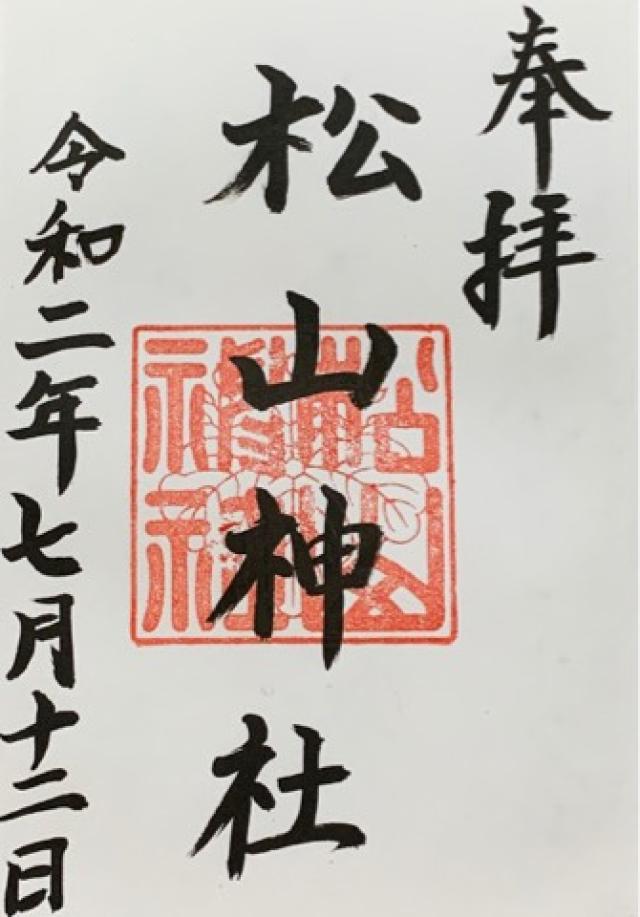 奉拝
松山神社
令和二年七月十二日